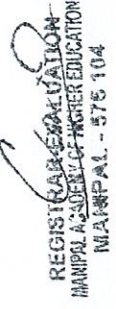 REGISTRAR-EVALUATION
MANIPAL ACADEMY OF HIGHER EDUCATION
MANIPAL - 576 104